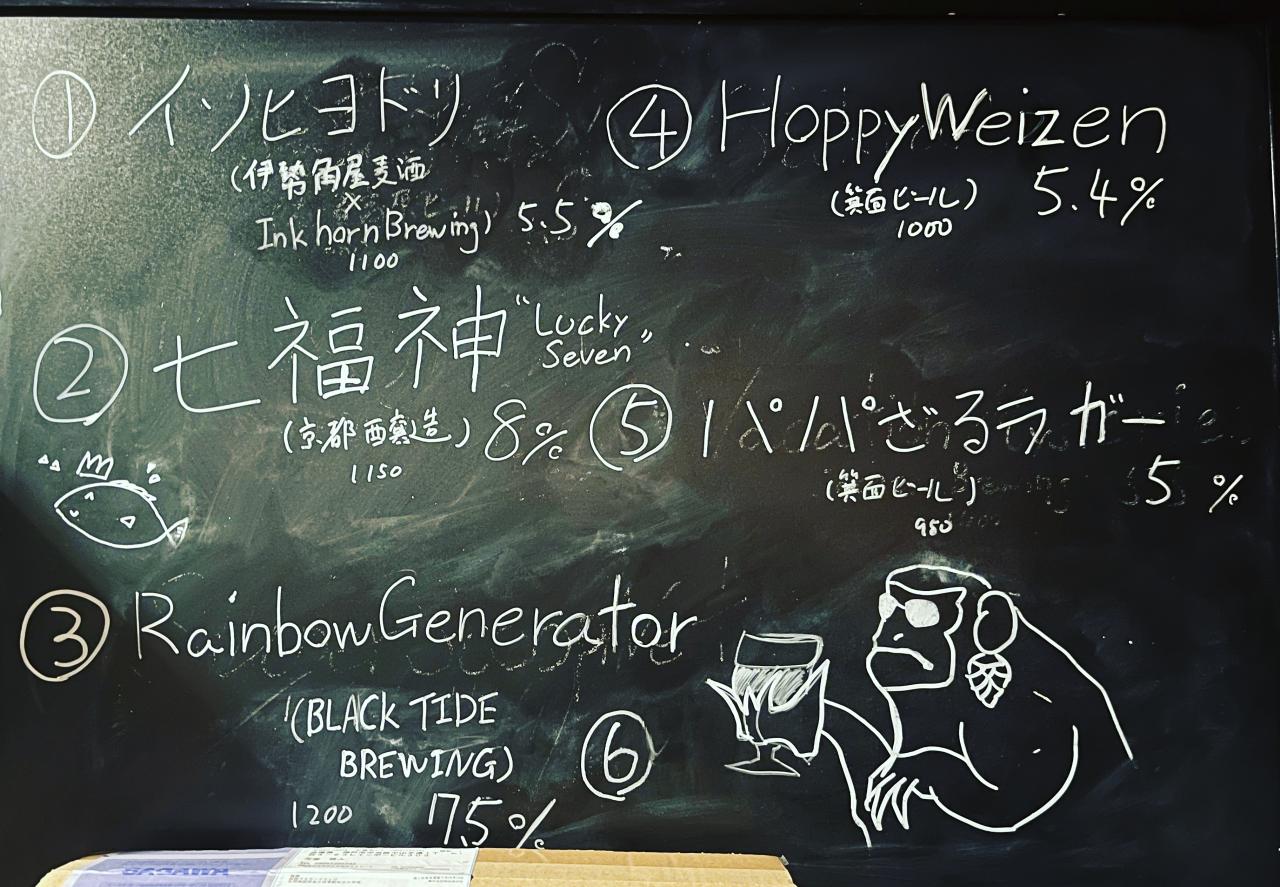 ① イソヒヨドリ
(伊勢角屋麦酒
×
Inkhorn Brewing) 5.5%
1100
② 七福神 "Lucky
Seven"
(京都西醸造) 8%
1150
③ Rainbow Generator
(BLACK TIDE
BREWING)
1200 7.5%
④ Hoppy Weizen
(箕面ビール) 5.4%
1000
⑤ パパざるラガー
(箕面ビール) 5%
950
⑥